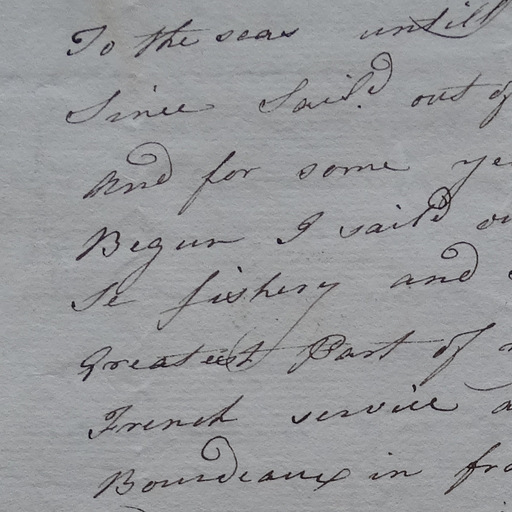 To the seas untill
Since Sail'd out of
And for some
Begun I sail'd
Se fishery and
Greatest Part of
French service
Bourdeaux in